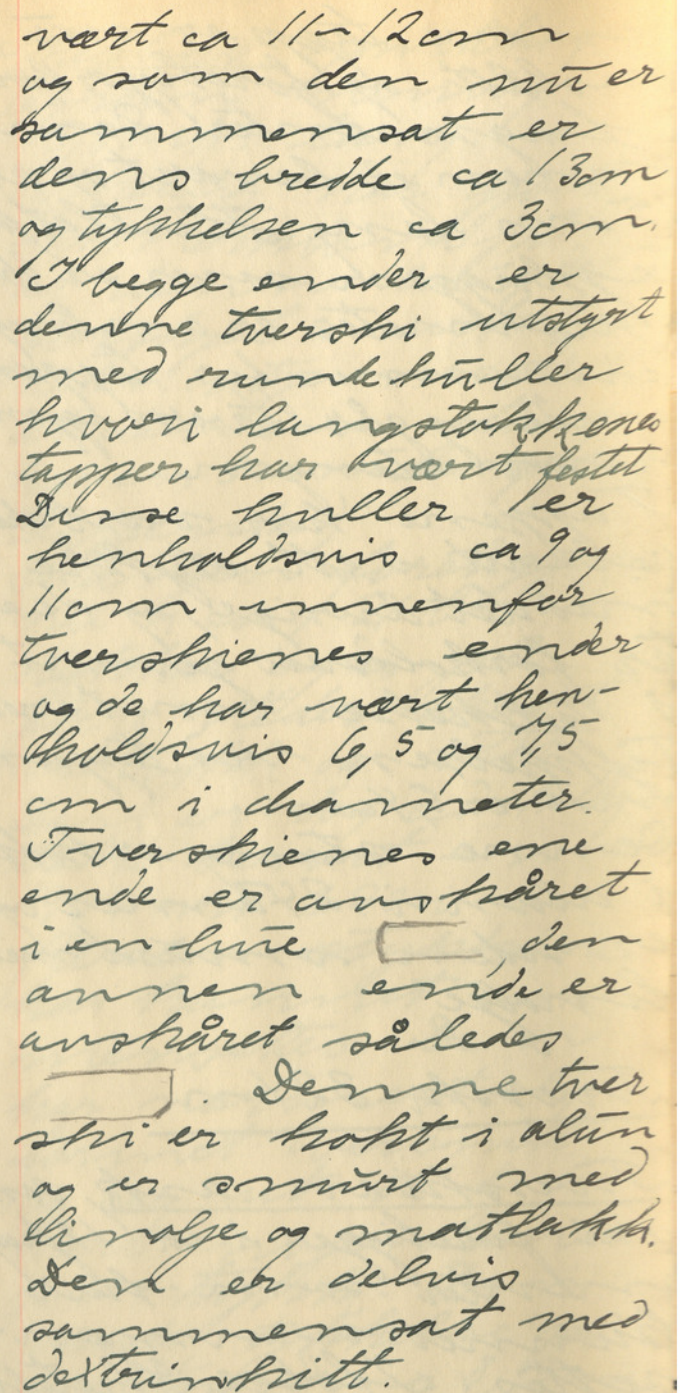 vært ca 11-12cm
og som den nu er
sammensat er
dens bredde ca 13cm
og tykkelsen ca 3cm.
I begge ender er
denne tverski utstyrt
med runde huller
hvori langstokkenes
tapper har vært festet
Disse huller er
henholdsvis ca 9 og
11cm innenfor
tverskienes ender
og de har vært hen-
holdsvis 6,5 og 7,5
cm i diameter.
Tverskienes ene
ende er avskåret
i en linie , den
annen ende er
avskåret således
. Denne tver
ski er kokt i alun
og er smurt med
linolje og matlakk.
Den er delvis
sammensat med
dextrinkitt.